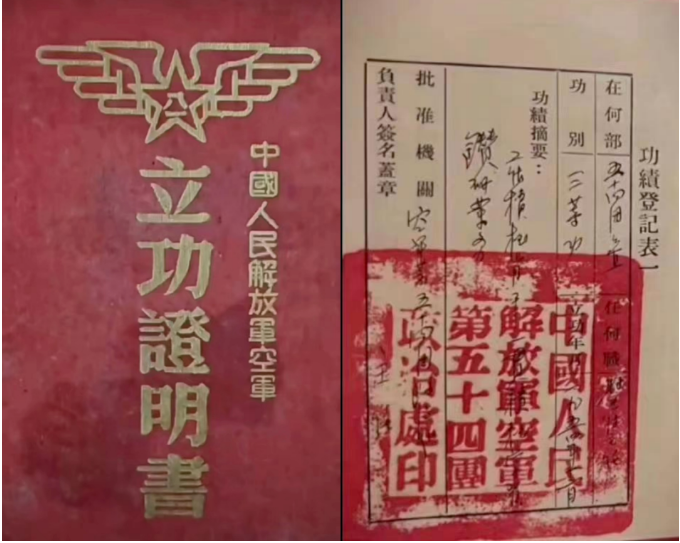 八一
中國人民解放軍空軍
立功證明書
功績登記表一
在何部 五十四团 在何職
功別 三等功 立功年月
功績摘要：
工作積極
鑽研業务
批准機關 空軍第五十四团
負責人簽名蓋章
中國人民
解放軍空軍
第五十四團
政治處印